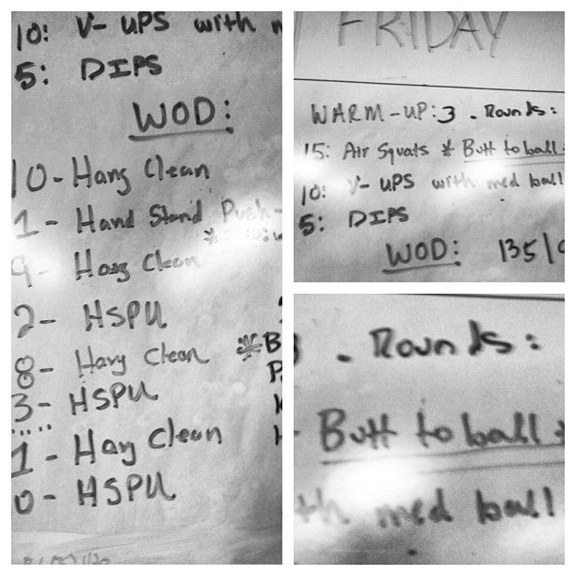 10: V-UPS with
5: DIPS
WOD:
10 - Hang Clean
1 - Hand Stand Push-
9 - Hang Clean
2 - HSPU
8 - Hang Clean
3 - HSPU
.....
1 - Hang Clean
0 - HSPU
FRIDAY
WARM-UP: 3 . Rounds:
15: Air Squats * Butt to ball
10: V-UPS with med ball
5: DIPS
WOD: 135/
. Rounds:
Butt to ball
th med ball